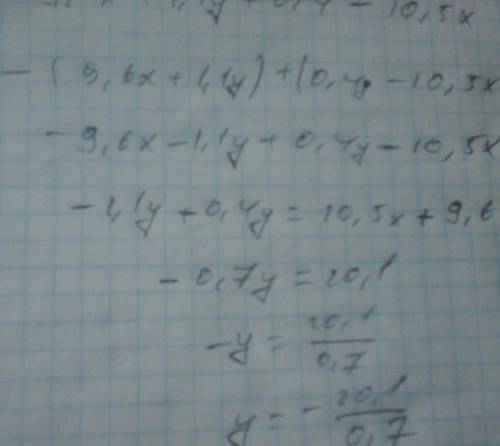 - 10,5x
- (9,6x + 1,1y) + (0,4y - 10,5x
- 9,6x - 1,1y + 0,4y - 10,5x
- 1,1y + 0,4y = 10,5x + 9,6
- 0,7y = 20,1
-y = 20,1/0,7
y = - 20,1/0,7